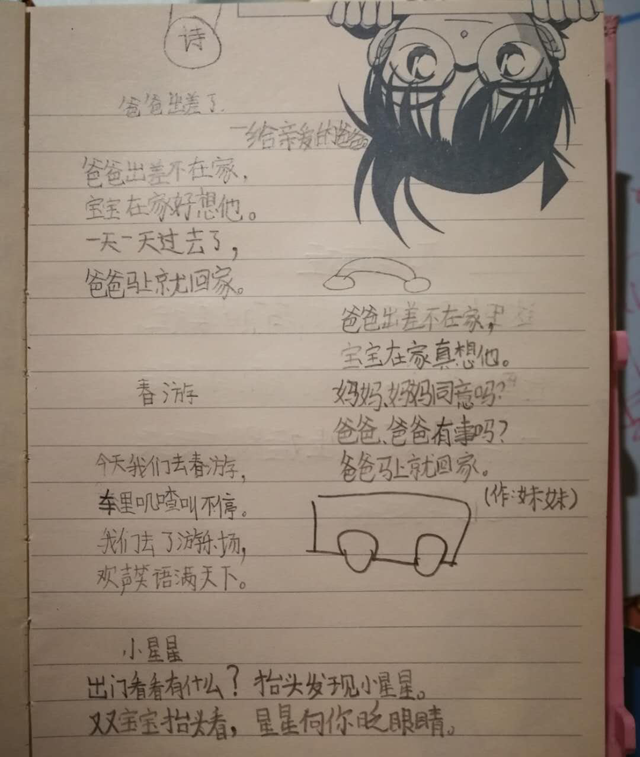 诗
爸爸出差了
—给亲爱的爸爸
爸爸出差不在家，
宝宝在家好想他。
一天一天过去了，
爸爸马上就回家。
爸爸出差不在家，
宝宝在家真想他。
妈妈、妈妈同意吗？
爸爸、爸爸有事吗？
爸爸马上就回家。
(作：妹妹)
春游
今天我们去春游，
车里叽喳叫不停。
我们去了游乐场，
欢声笑语满天下。
小星星
出门看看有什么？抬头发现小星星。
双双宝宝抬头看，星星向你眨眼睛。